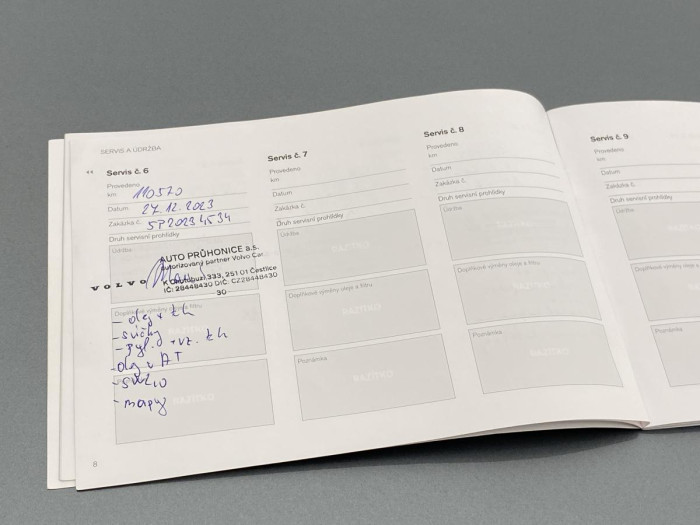 SERVIS A ÚDRŽBA
Servis č. 6
Provedeno
km 110520
Datum 27.12.2023
Zakázka č. SP20234534
Druh servisní prohlídky
Údržba
AUTO PRŮHONICE a.s.
autorizovaný partner Volvo Car
VOLVO
K Dálnici 333, 251 01 Čestlice
IČ: 28448430 DIČ: CZ28448430
30
Doplňkové výměny oleje a filtru
RAZÍTKO
- olej + th
- svíčky
- pyl. + vz. th
- olej v AT
- SW
- mapy
RAZÍTKO
8
Servis č. 7
Provedeno
km
Datum
Zakázka č.
Druh servisní prohlídky
Údržba
RAZÍTKO
Doplňkové výměny oleje a filtru
RAZÍTKO
Poznámka
RAZÍTKO
Servis č. 8
Provedeno
km
Datum
Zakázka č.
Druh servisní prohlídky
Údržba
Doplňkové výměny oleje a filtru
RAZÍTKO
Poznámka
RAZÍTKO
Servis č. 9
Provedeno
km
Datum
Zakázka č.
Druh servisní prohlídky
Údržba
RAZÍTKO
Doplňkové výměny oleje a filtru
RAZÍTKO
Poznámka